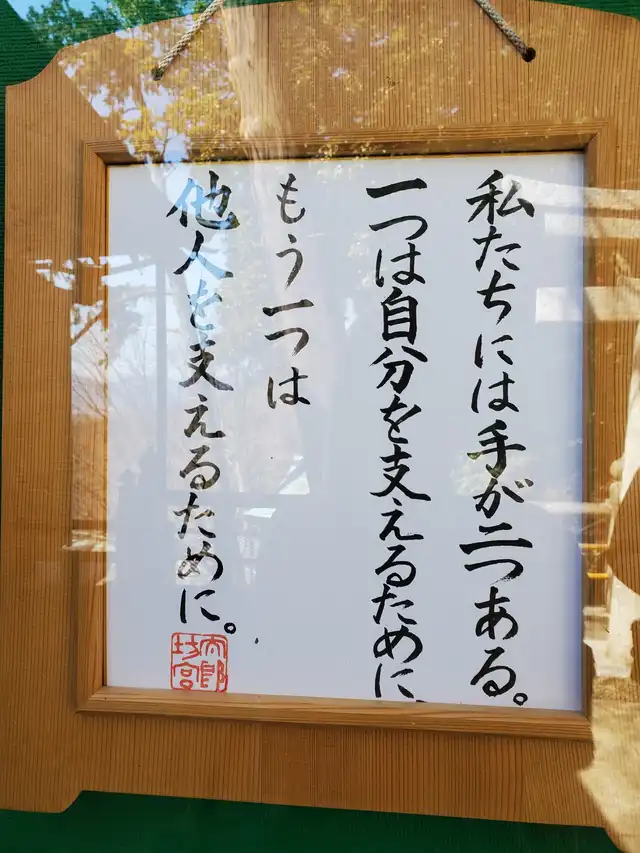 私たちには手が二つある。
一つは自分を支えるために、
もう一つは
他人を支えるために。
太郎坊宮